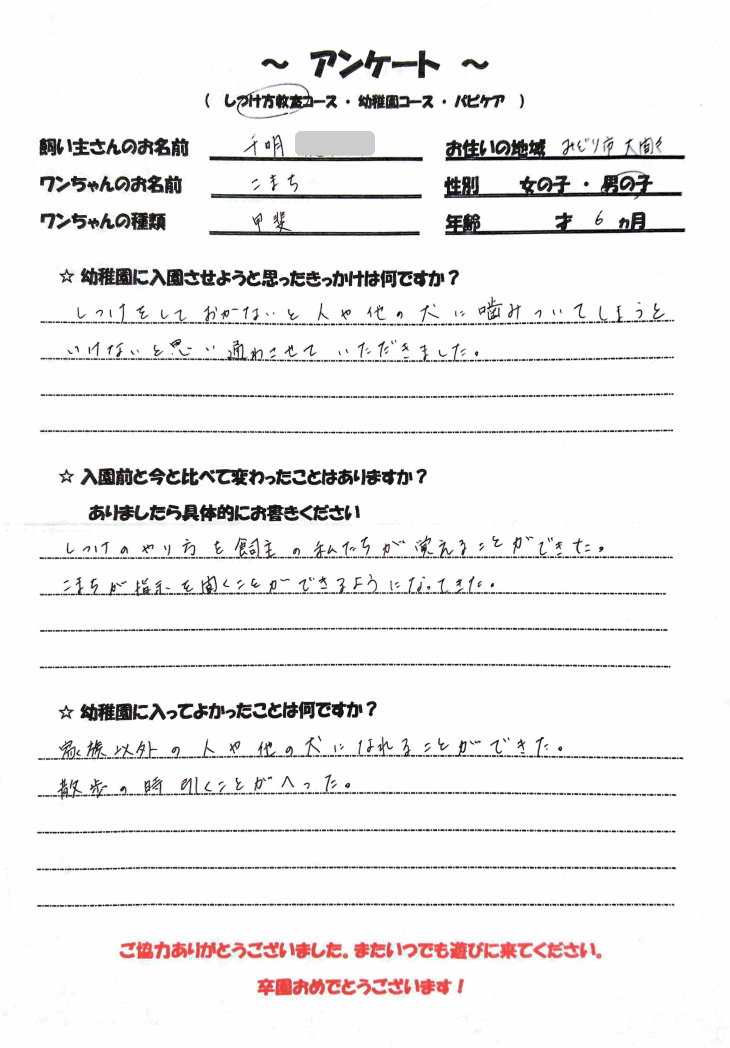 ～ アンケート ～
( しつけ方教室コース・幼稚園コース・パピケア )
飼い主さんのお名前 千明 お住いの地域 みどり市 大間々
ワンちゃんのお名前 こまち 性別 女の子・男の子
ワンちゃんの種類 甲斐 年齢 才 6 ヵ月
☆ 幼稚園に入園させようと思ったきっかけは何ですか？
しつけをしておかないと人や他の犬に噛みついてしまうと
いけないと思い通わさせていただきました。
☆ 入園前と今と比べて変わったことはありますか？
ありましたら具体的にお書きください
しつけのやり方を飼主の私たちが覚えることができた。
こまちが指示を聞くことができるようになってきた。
☆ 幼稚園に入ってよかったことは何ですか？
家族以外の人や他の犬になれることができた。
散歩の時引くことがへった。
ご協力ありがとうございました。またいつでも遊びに来てください。
卒園おめでとうございます！